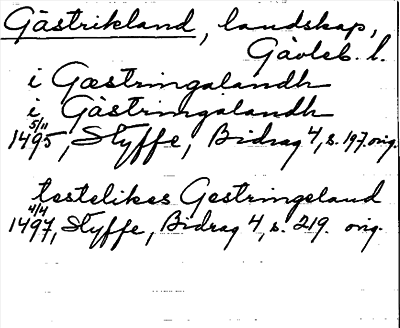 Gästrikland, landskap,
Gävleb. l.
i Gæstringalandh
i Gästringalandh
5/11
1495, Styffe, Bidrag 4, s. 197. orig.
testelikes Gestringeland
4/4
1497, Styffe, Bidrag 4, s. 219. orig.